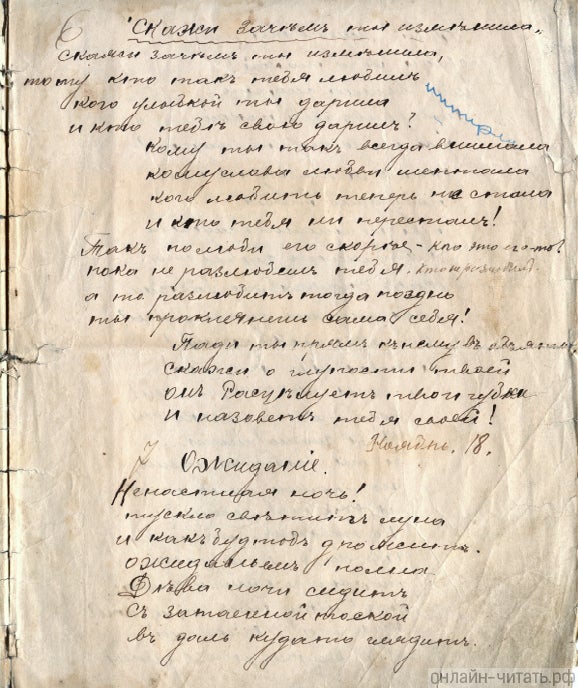 6 Скажи зачѣмъ ты измѣнила,
Скажи зачѣмъ ты измѣнила,
тому кто такъ тебя любилъ
кого улыбкой ты дарила
и кто тебѣ свою дарилъ?
кому ты такъ всегда внимала
кому слова любви шептала
кого любить теперь не стала
и кто тебя не пересталъ!
Такъ полюби его скорѣе - кто это его-то?
пока не разлюбилъ тебя.
а то разлюбитъ тогда поздно
ты проклянешь сама себя!
Пади ты прямъ къ нему въ объятья
скажи о глупости твоей
онъ Расцѣлуетъ твои губки
и назоветъ тебя своей!
Ноябрь. 18.
7 Ожиданіе.
Ненастная ночь!
тускло свѣтитъ луна
и какъ будтобъ дрожитъ.
ожиданьемъ полна
Дѣва ночи сидитъ
съ затаенной тоской
въ даль куда то глядитъ.
онлайн-читать.рф